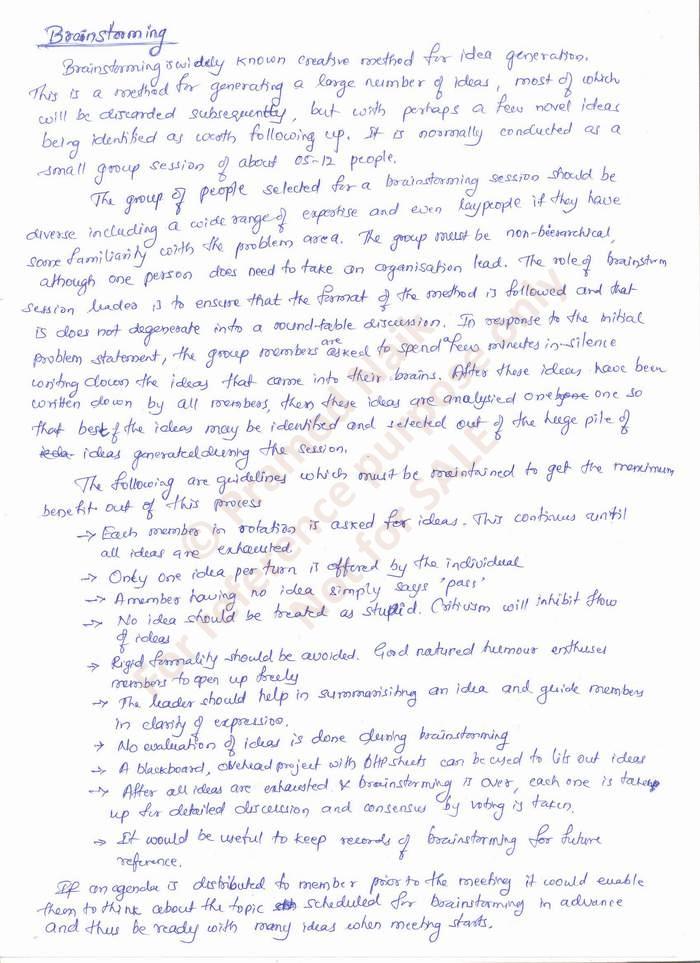 Brainstorming
Brainstorming is widely known creative method for idea generation.
This is a method for generating a large number of ideas, most of which
will be discarded subsequently, but with perhaps a few novel ideas
being identified as worth following up. It is normally conducted as a
small group session of about 05-12 people.
The group of people selected for a brainstorming session should be
diverse including a wide range of expertise and even laypeople if they have
some familiarity with the problem area. The group must be non-hierarchical,
although one person does need to take an organisation lead. The role of brainstorm
session leader is to ensure that the format of the method is followed and that
is does not degenerate into a round-table discussion. In response to the initial
problem statement, the group members are asked to spend a few minutes in-silence
writing down the ideas that came into their brains. After these ideas have been
written down by all members, then these ideas are analysied one by one so
that best of the ideas may be identified and selected out of the huge pile of
ideas generated during the session.
The following are guidelines which must be maintained to get the maximum
benefit out of this process
→ Each member in rotation is asked for ideas. This continues until
all ideas are exhausted.
→ Only one idea per turn is offered by the individual
→ A member having no idea simply says 'pass'
→ No idea should be treated as stupid. Criticism will inhibit flow
of ideas
→ Rigid formality should be avoided. Good natured humour enthuses
members to open up freely
→ The leader should help in summarisithg an idea and guide members
in clarity of expression.
→ No evaluation of ideas is done during brainstorming
→ A blackboard, overhead project with OHP sheets can be used to lits out ideas
→ After all ideas are exhausted & brainstorming is over, each one is taken
up for detailed discussion and consensus by voting is taken.
→ It would be useful to keep records of brainstorming for future
reference.
If an agenda is distributed to member prior to the meeting it would enable
them to think about the topic scheduled for brainstorming in advance
and thus be ready with many ideas when meeting starts.
© Pramod Naik
For reference purpose only
Not for SALE